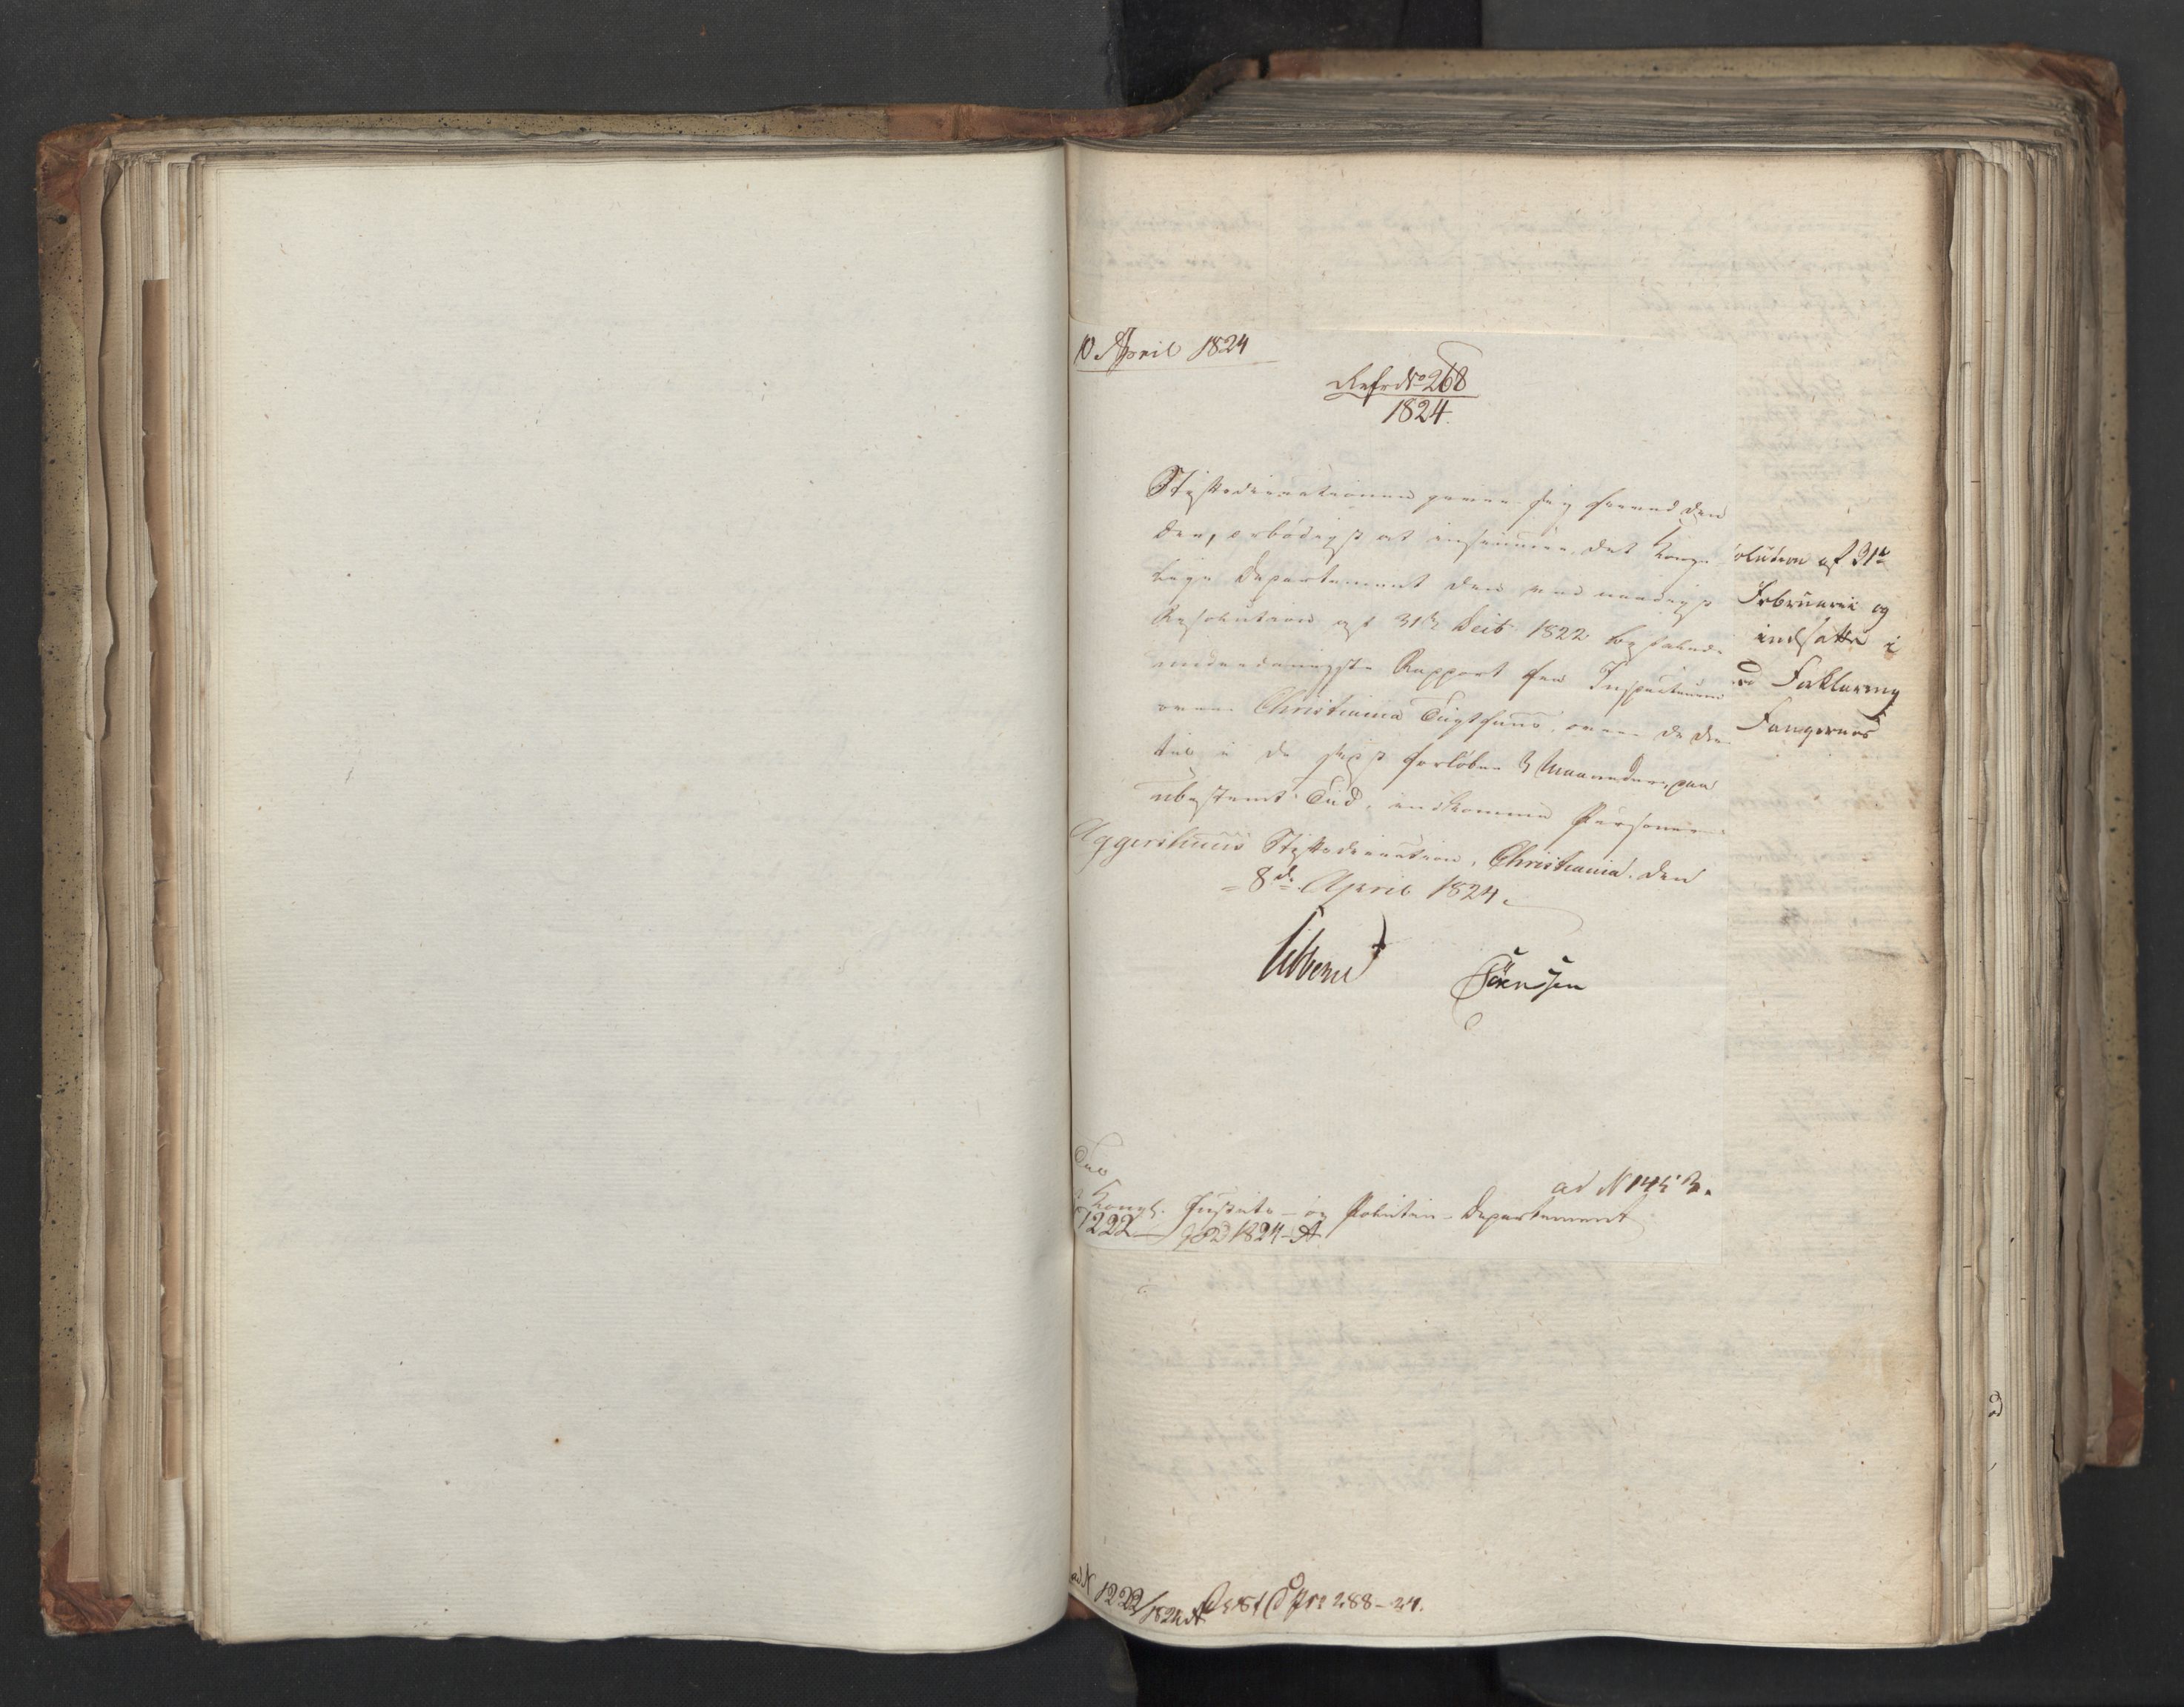 10 April 1824
Refr. No 268
1824.
Stiftsdirectionen giver sig herved den
Ære, ærbødigst at indsende det Konge-
lige Departement den ved naadigst
Resolution af 31te Decbr 1822 befalede
underdanigste Rapport fra Inspecteuren
over Christiania Tugthuus, over de der-
til i de sidst forløbne 3 Maaneder, paa
ubestemt Tid, indkomne Personer.
Aggershuus Stiftsdirection, Christiania, den
8de April 1824.
Sibbern Sørenssen
olution af 31te
Februarii og
indsatte i
Forklaring
Fangernes
Til
Kongl. Justits- og Politie-Departement
ad N 1453.
1222 1824-A
ad N 1222/1824 A 288-24.